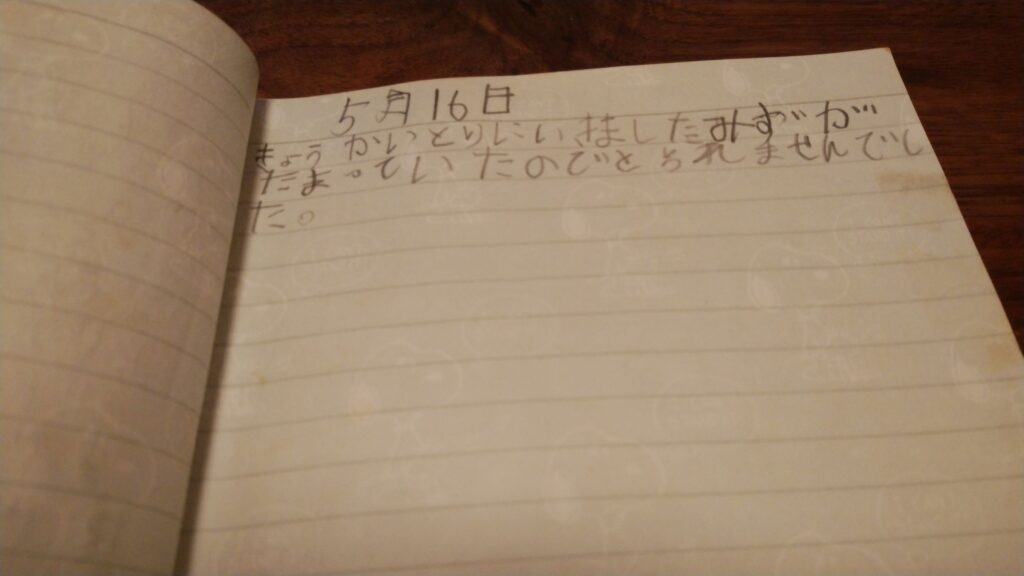 5月16日
きょうかいとりにいきましたみずが
たまっていたのでとられませんでし
た。